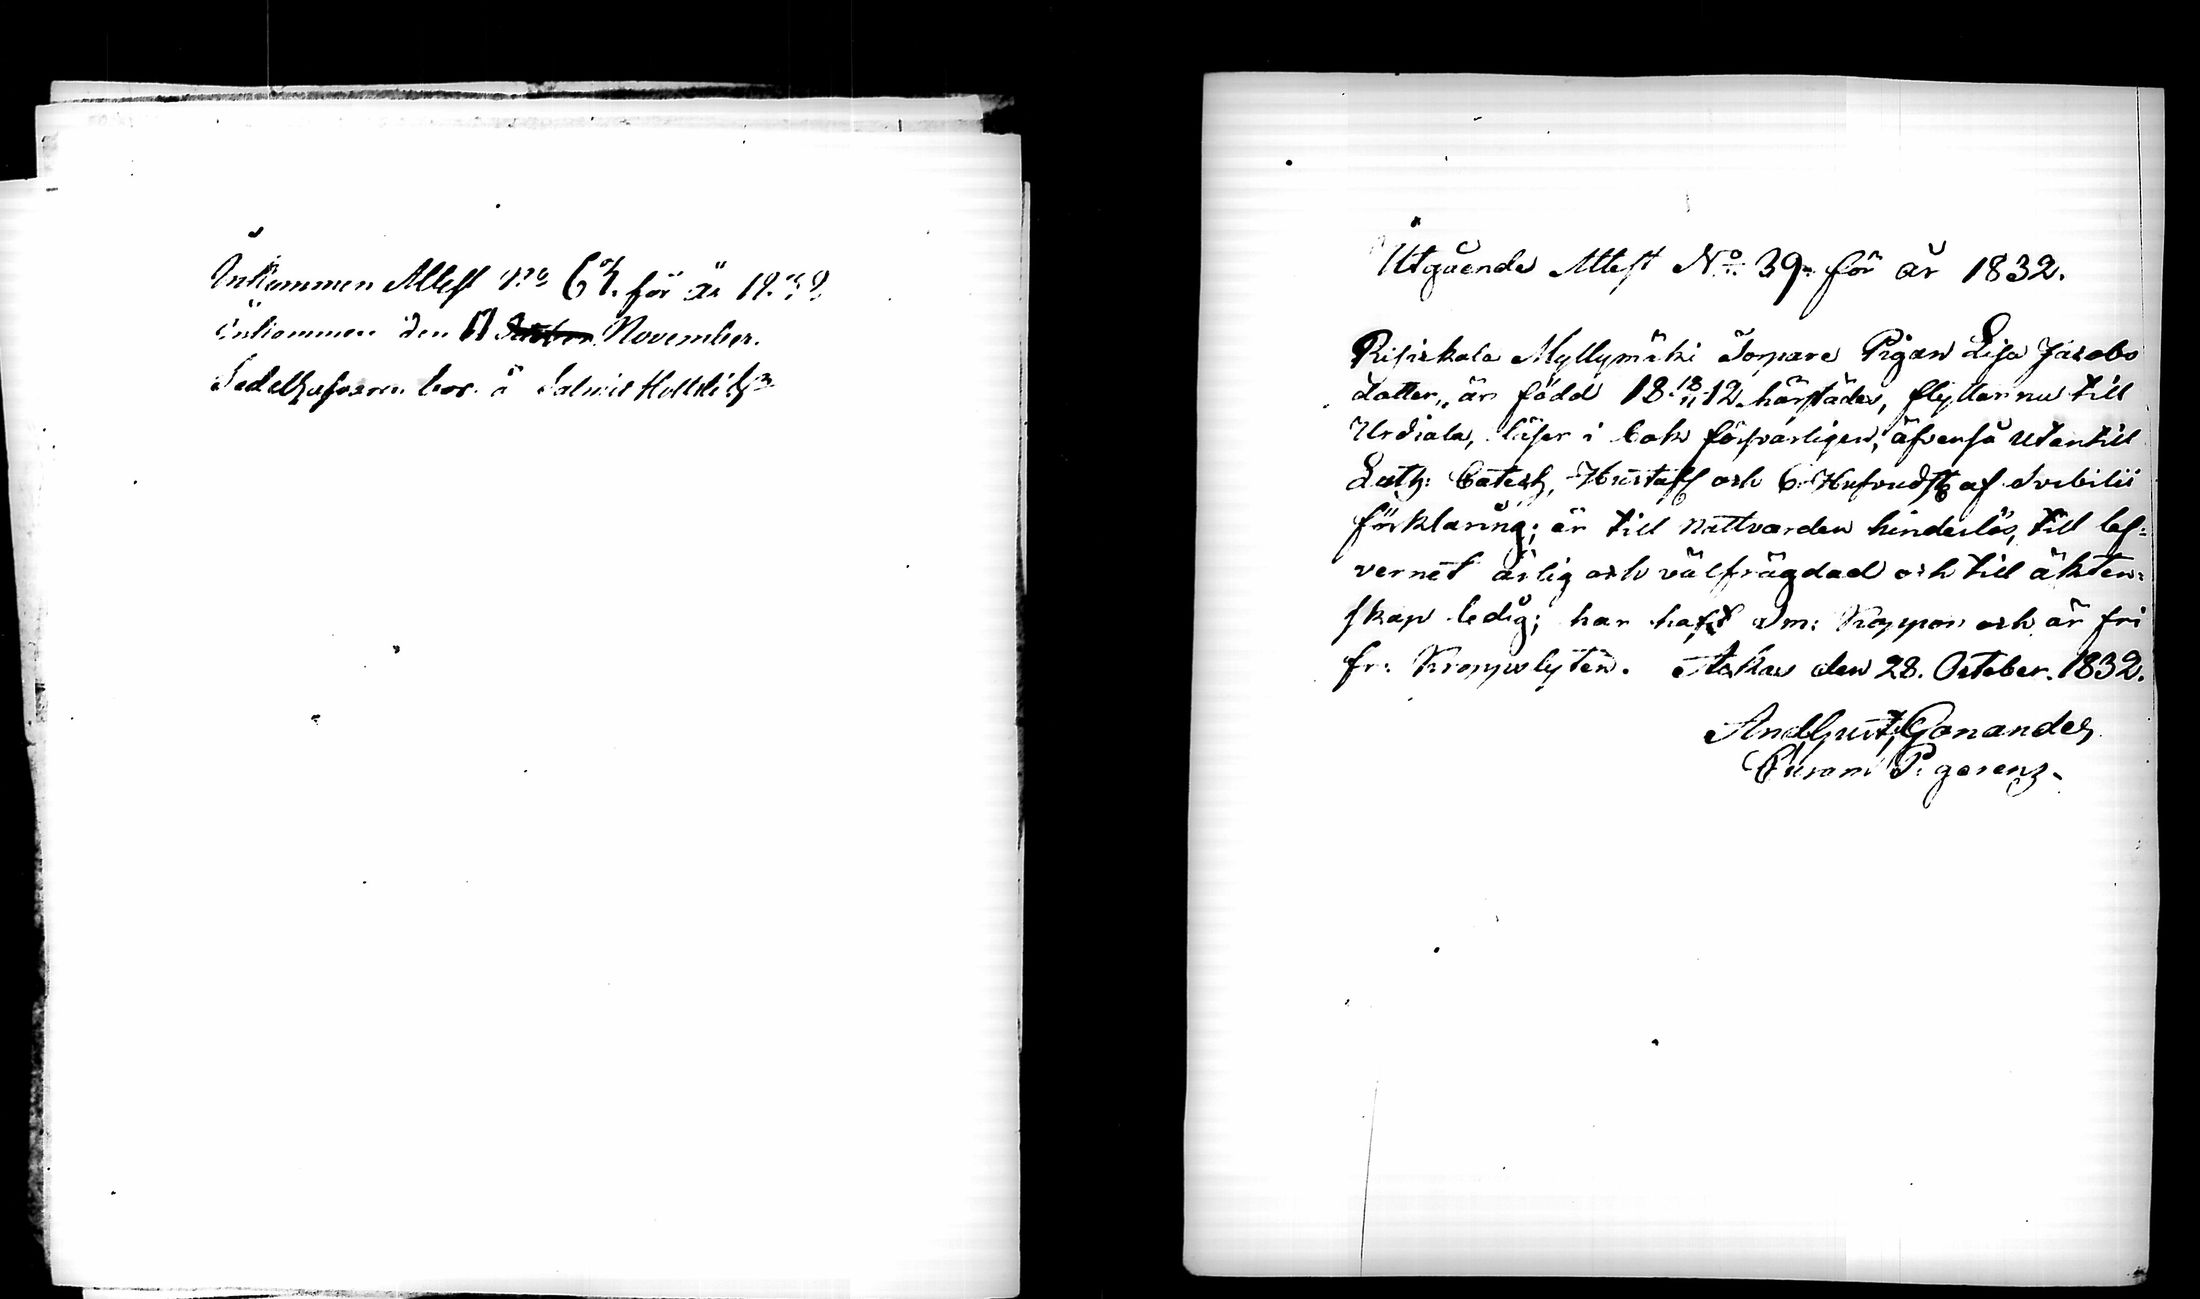 Inkommen Attest för år
inkommen den 17 November.
Sedelhafvaren bor å
Utgående Attest No. 39. för år 1832.
Risickala Myllymäki Torpare Pigan Lisa Jacobs
dotter, är född 18 18/11 12 härstädes, flyttar nu till
Urdiala, läser i bok försvarligen, äfvenså utantill
Luth: Catech, Hustafl och 6 Hufvudst af Svebilii
förklaring; är till nattvarden hinderlös, till lef-
vernet ärlig och välfrägdad och till äkten-
skap ledig; har haft Vm: Koppor och är fri
fr: Akkas den 28. October. 1832.
And Gust Gonander
P. gerens.